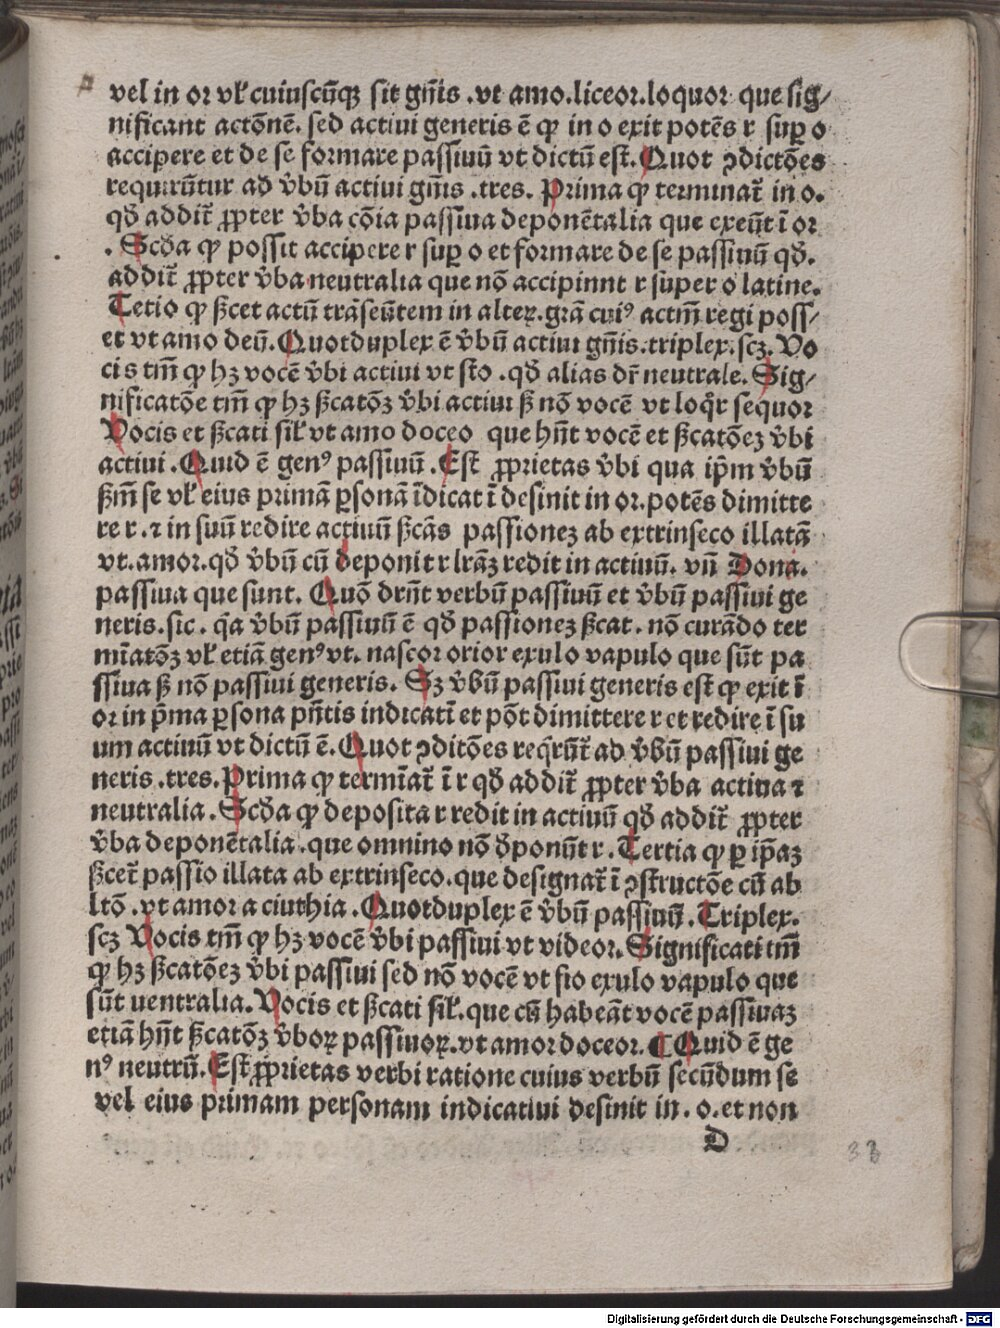 vel in or vl̕ cuiuscūqꝫ sit gn̄is .vt amo.liceor.loquor que sig⸗
nificant actōnē. sed actiui generis ē ꝙ in o exit potēs r sup̲ o
accipere et de se formare passiuū vt dictū est. Quot ꝯdictōes
requirūtur ad v̄bū actiui gn̄is .tres. Prima ꝙ terminat̄ in o.
qd̄ addit̄ ꝓpter v̄ba cōia passiua deponētalia que exeūt ī or
. Scd̄a ꝙ possit accipere r sup̲ o et formare de se passiuū qd̄.
addit̄ ꝓpter v̄ba neutralia que nō accipinnt r super o latine.
Tetio ꝙ ßcet actū trāseūtem in alteꝝ.grā cuiꝰ actm̄ regi poss⸗
et vt amo deū. Quotduplex ē v̄bū actiui gn̄is.triplex.scꝫ. Vo
cis tm̄ ꝙ hꝫ vocē v̄bi actiui vt sto .qd̄ alias dr̄ neutrale. Sig⸗
nificatōe tm̄ ꝙ hꝫ ßcatōꝫ v̄bi actiui ß nō vocē vt loq̄r sequor
Vocis et ßcati sil̕ vt amo doceo que hn̄t vocē et ßcatōeꝫ v̄bi
actiui . Quid ē genꝰ passiuū . Est ꝓprietas v̄bi qua ip̄m v̄bū
ßm̄ se vl̕ eius primā ꝑsonā īdicat ī desinit in or.potēs dimitte
re r . ⁊ in suū redire actiuū ßcās passioneꝫ ab extrinseco illatā
vt.amor.qd̄ v̄bū cū deponit r lrāꝫ redit in actiuū. vn̄ Dona.
passiua que sunt. Quō drn̄t verbū passiuū et v̄bū passiui ge
neris.sic . q̄a v̄bū passiuū ē qd̄ passioneꝫ ßcat. nō curādo ter
mīatōꝫ vl̕ etiā genꝰ vt. nascor orior exulo vapulo que sūt pa
ssiua ß nō passiui generis. Sꝫ v̄bū passiui generis est ꝙ exit ī
or in p̄ma ꝑsona pn̄tis indicati̅ et pōt dimittere r et redire ī su
um actiuū vt dictū ē. Quot ꝯditōes req̄rūt̄ ad v̄bū passiui ge
neris .tres. Prima ꝙ termīat̄ ī r qd̄ addit̄ ꝓpter v̄ba actiua ⁊
neutralia . Scd̄a ꝙ deposita r redit in actiuū qd̄ addit̄ ꝓpter
v̄ba deponētalia .que omnino nō d̄ponūt r . Tertia ꝙ ꝑ ip̄aꝫ
ßcet̄ passio illata ab extrinseco.que designat̄ ī ꝯstructōe cū ab
ltō .vt amor a ciuthia . Quotduplex ē v̄bū passiuū. Triplex.
scꝫ Vocis tm̄ ꝙ hꝫ vocē v̄bi passiui vt videor. Significati tm̄
ꝙ hꝫ ßcatōeꝫ v̄bi passiui sed nō vocē vt fio exulo vapulo que
sūt uentralia. Vocis et ßcati sil̕. que cū habeāt vocē passiuaꝫ
etiā hn̄t ßcatōꝫ v̄boꝝ passiuoꝝ.vt amor doceor. ¶ Quid ē ge
nꝰ neutrū. Est ꝓprietas verbi ratione cuius verbū secūdum se
vel eius primam personam indicatiui desinit in . o. et non
D
33
Digitalisierung gefördert durch die Deutsche Forschungsgemeinschaft - DFG